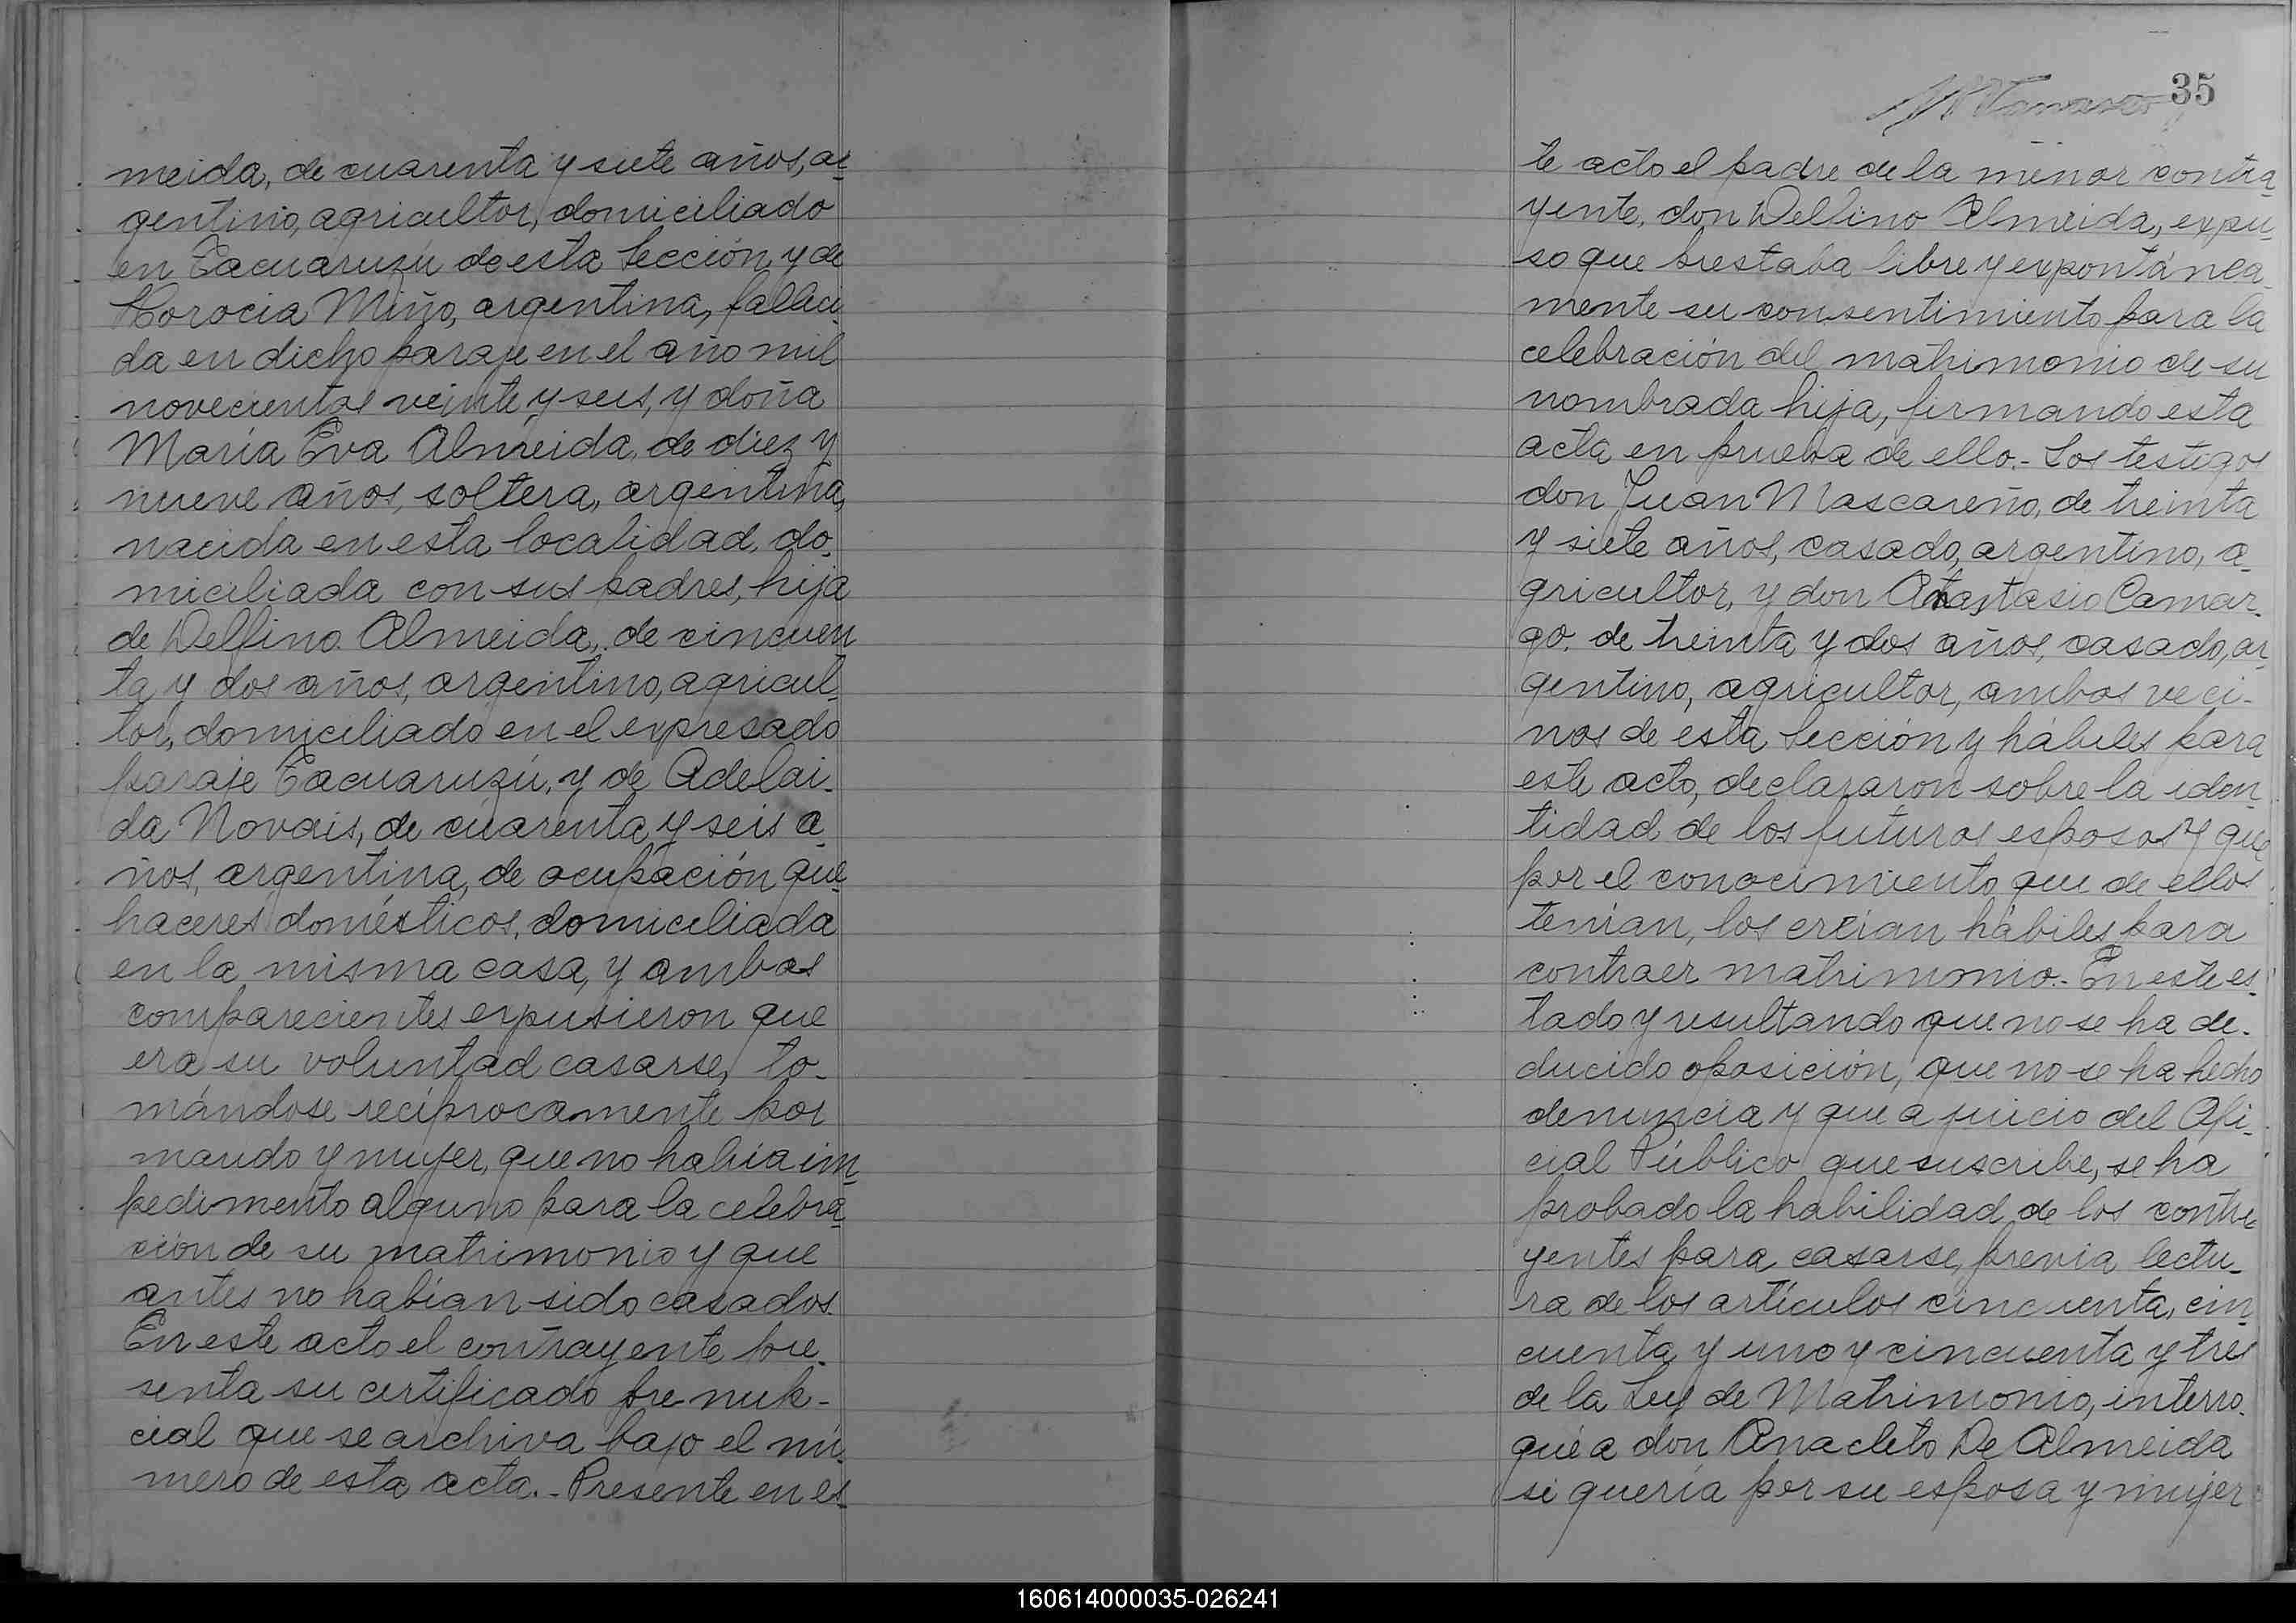 meida, de cuarenta y siete años, ar-
gentino, agricultor, domiciliado
en Tacuaruzú de esta Sección, y de
Horocia Miño, argentina, falleci-
da en dicho paraje en el año mil
novecientos veinte y seis, y doña
María Eva Almeida, de diez y
nueve años, soltera, argentina,
nacida en esta localidad, do-
miciliada con sus padres, hija
de Delfino Almeida, de cincuen-
ta y dos años, argentino, agricul-
tor, domiciliado en el expresado
paraje Tacuaruzú, y de Adelai-
da Novais, de cuarenta y seis a-
ños, argentina, de ocupación que-
haceres domésticos, domiciliada
en la misma casa, y ambos
comparecientes expusieron que
era su voluntad casarse, to-
mándose recíprocamente por
marido y mujer, que no había im-
pedimento alguno para la celebra-
ción de su matrimonio y que
antes no habían sido casados.
En este acto el contrayente pre-
senta su certificado pre nup-
cial que se archiva bajo el nú-
mero de esta acta.- Presente en es-
35
te acto el padre de la menor contra-
yente, don Delfino Almeida, expu-
so que prestaba libre y expontánea-
mente su consentimiento para la
celebración del matrimonio de su
nombrada hija, firmando esta
acta en prueba de ello.- Los testigos
don Juan Mascareño, de treinta
y siete años, casado, argentino, a-
gricultor, y don Anastasio Camar-
go, de treinta y dos años, casado, ar-
gentino, agricultor, ambos veci-
nos de esta Sección y hábiles para
este acto, declararon sobre la iden-
tidad de los futuros esposos y que
por el conocimiento que de ellos
tenían, los creían hábiles para
contraer matrimonio.- En este es-
tado y resultando que no se ha de-
ducido oposición, que no se ha hecho
denuncia y que a juicio del Ofi-
cial Público que suscribe, se ha
probado la habilidad de los contra-
yentes para casarse, previa lectu-
ra de los artículos cincuenta, cin-
cuenta y uno y cincuenta y tres
de la Ley de Matrimonio, interro-
gué a don Anacleto De Almeida
si quería por su esposa y mujer
160614000035-026241